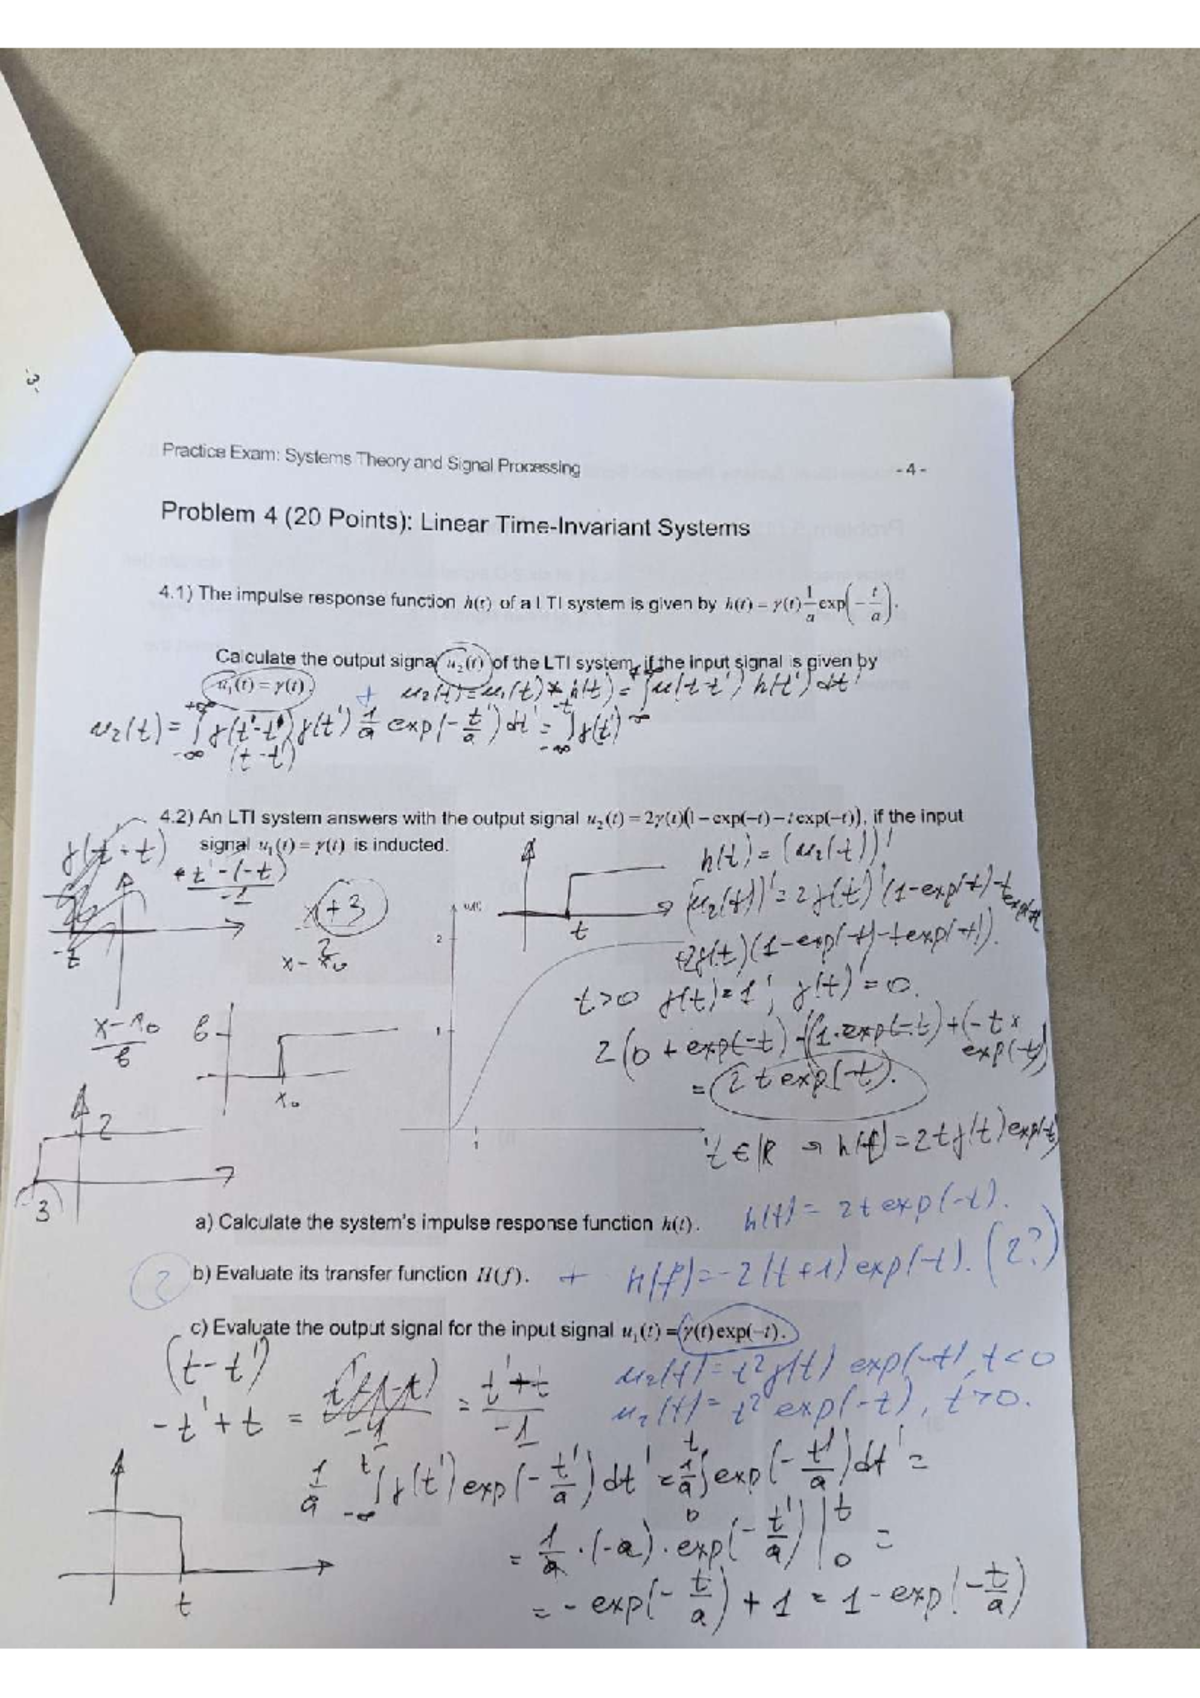 -3-
Practice Exam: Systems Theory and Signal Processing - 4 -
Problem 4 (20 Points): Linear Time-Invariant Systems
4.1) The impulse response function h(t) of a LTI system is given by h(t) = γ(t) 1/a exp(-t/a).
Calculate the output signal u₂(t) of the LTI system, if the input signal is given by
u₁(t) = γ(t)
+ u₂(t) = u₁(t) * h(t) = ∫ u(t-t') h(t') dt'
u₂(t) = ∫ γ(t'-t) γ(t') 1/a exp(-t'/a) dt' = ∫ γ(t')
(t-t')
4.2) An LTI system answers with the output signal u₂(t) = 2γ(t)(1-exp(-t)-t exp(-t)), if the input
signal u₁(t) = γ(t) is inducted.
h(t) = (u₂(t))'
t'-(-t)
-1
(u₂(t))' = 2γ(t)'(1-exp(-t)-t exp(-t)
x+3
2
-t
t
x-x₀
+2γ(t)(1-exp(-t)-t exp(-t))'.
2
t>0 γ(t)=1; γ(t)'=0.
x-x₀
b
b
x₀
1
2(0+exp(-t)-(1·exp(-t)+(-t×
exp(-t)
= 2t exp(-t).
2
1
t∈ℝ → h(t) = 2tγ(t)exp(-t)
-3
a) Calculate the system's impulse response function h(t). h(t) = 2t exp(-t).
b) Evaluate its transfer function H(f). + h(f) = -2(t+1) exp(-t). (2?)
c) Evaluate the output signal for the input signal u₁(t) = γ(t)exp(-t).
(t-t')
u₂(t) = t²γ(t) exp(-t), t<0
-t'+t = = t'+t/-1
u₂(t) = t² exp(-t), t>0.
1/a ∫ γ(t') exp(-t'/a) dt' = 1/a ∫ exp(-t'/a) dt' =
= 1/a · (-a) · exp(-t'/a) |₀ᵗ =
t
= -exp(-t/a) + 1 = 1-exp(-t/a)